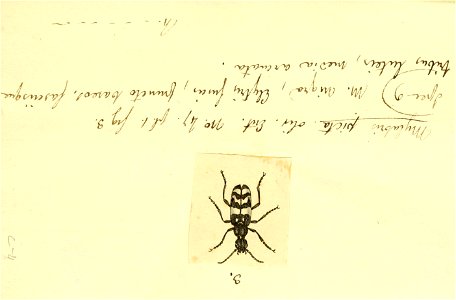 3.
Mylabris picta oliv. Ent. no 47. pl. 1. fig 3.
M. nigra, Elytris fuscis, puncto baseos, fasciisque
tribus luteis, media arcuata.